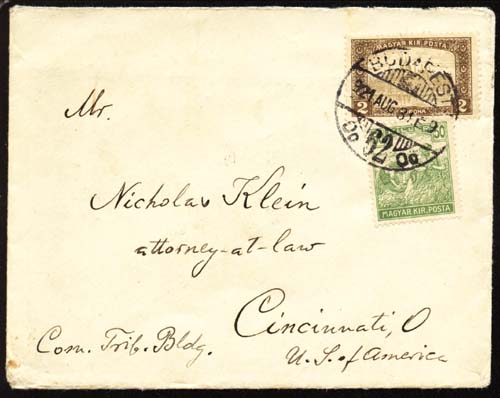 MAGYAR KIR. POSTA
2 2
BUDAPEST
921 AUG
50
MAGYAR KIR. POSTA
Mr.
Nicholas Klein
attorney-at-law
Cincinnati, O
Com. Trib. Bldg.
U.S. of America